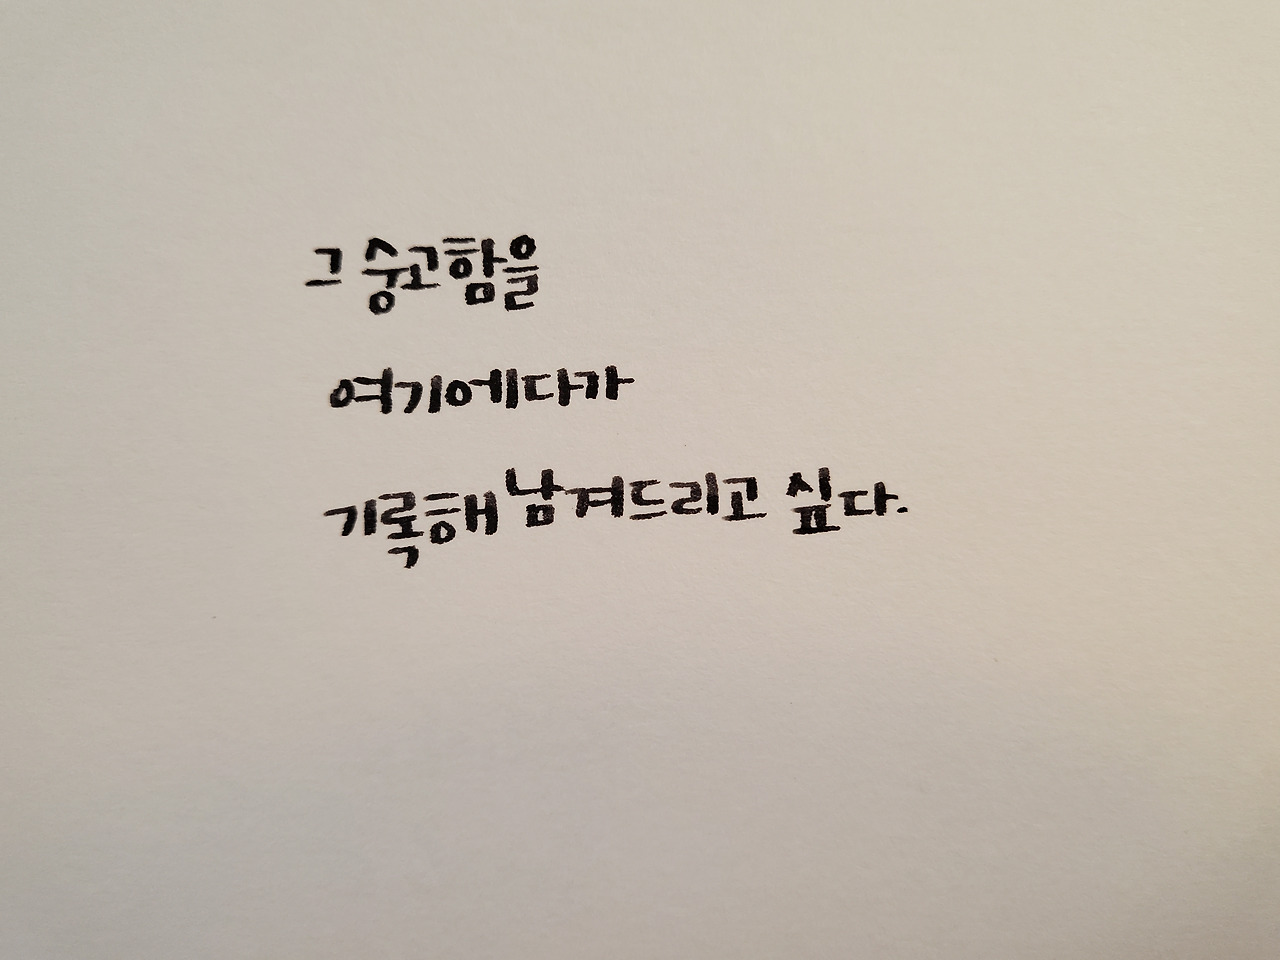 그 숭고함을
여기에다가
기록해 남겨드리고 싶다.